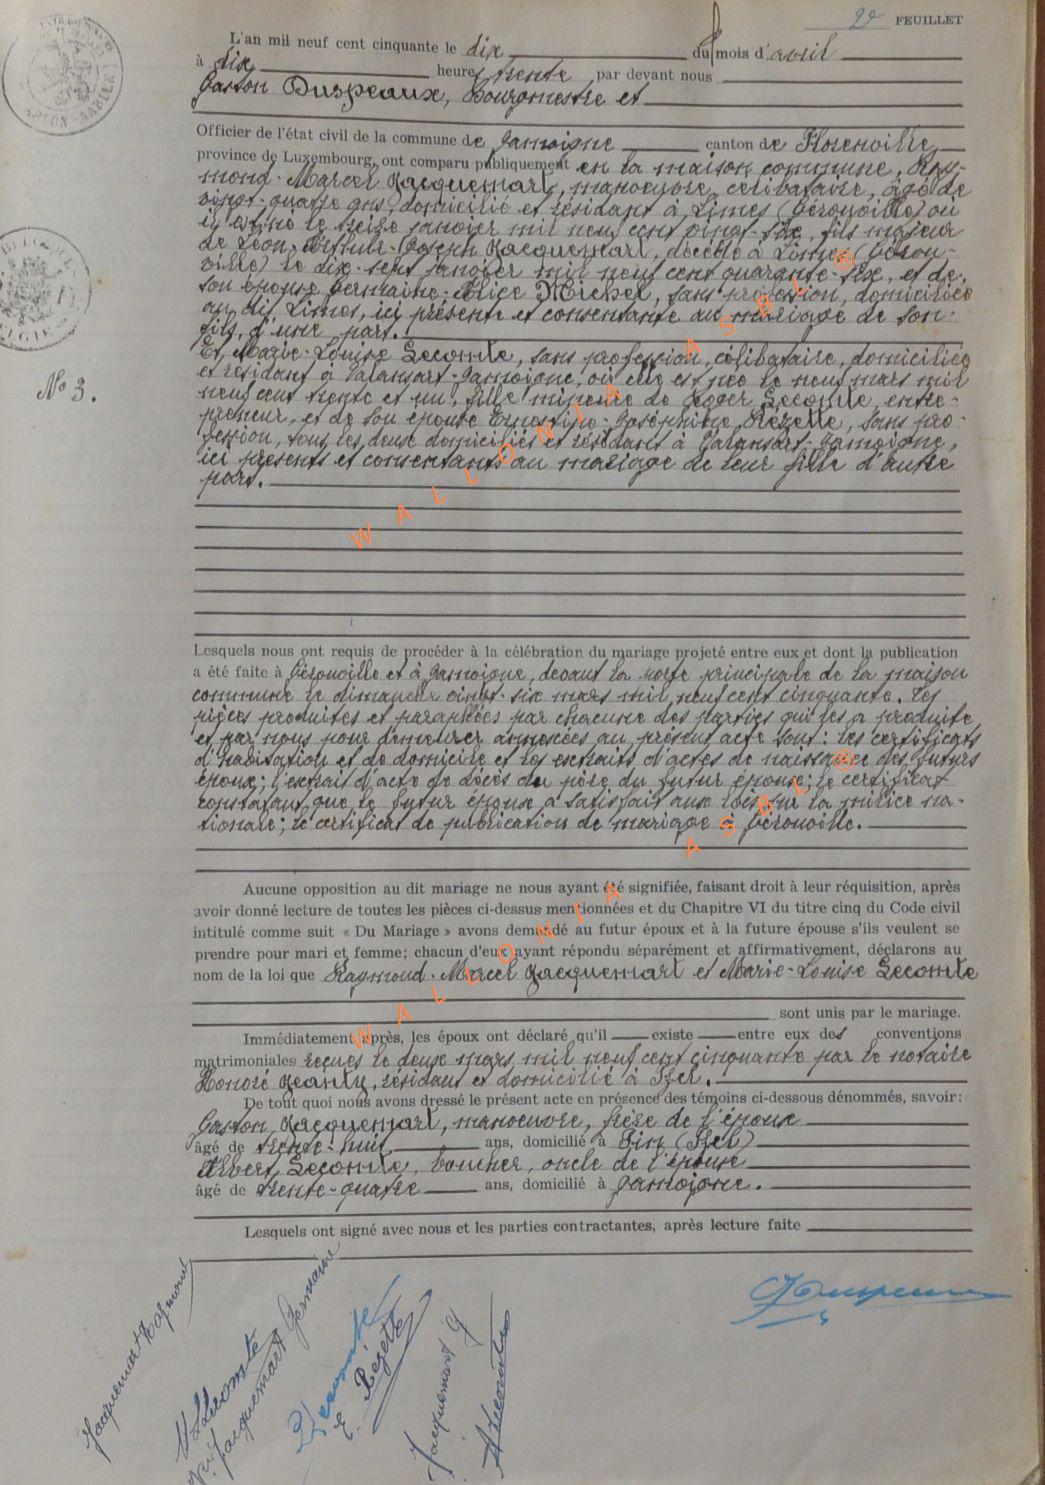 2e FEUILLET
L'an mil neuf cent cinquante le dix du mois d'avril
à dix heures trente par devant nous
Gaston Duspeaux, Bourgmestre et
Officier de l'état civil de la commune de Jamoigne canton de Florenville
province de Luxembourg, ont comparu publiquement en la maison commune, Ray-
mond-Marcel Jacquemart, manoeuvre, célibataire, âgé de
vingt-quatre ans, domicilié et résidant à Limes (Gérouville) où
il est né le treize janvier mil neuf cent vingt-six, fils majeur
de Léon-Arthur-Joseph Jacquemart, décédé à Limes (Gérou-
ville) le dix-sept janvier mil neuf cent quarante-six, et de
son épouse Germaine-Alice Michel, sans profession, domiciliée
au dit Limes, ici présente et consentante au mariage de son
fils, d'une part.
Et, Marie-Louise Lecomte, sans profession, célibataire, domiciliée
et résidant à Valansart-Jamoigne, où elle est née le neuf mars mil
neuf cent trente et un, fille mineure de Roger Lecomte, entre-
preneur, et de son épouse Ernestine-Joséphine Rézette, sans pro-
fession, tous les deux domiciliés et résidant à Valansart-Jamoigne,
ici présents et consentants au mariage de leur fille d'autre
part.
No 3.
Lesquels nous ont requis de procéder à la célébration du mariage projeté entre eux et dont la publication
a été faite à Gérouville et à Jamoigne, devant la porte principale de la maison
commune le dimanche vingt-six mars mil neuf cent cinquante. Les
pièces produites et paraphées par chacune des parties qui les a produite
et par nous pour demeurer annexées au présent acte sont: les certificats
d'habitation et de domicile et les extraits d'actes de naissance des futurs
époux; l'extrait d'acte de décès du père du futur époux; le certificat
constatant que le futur époux a satisfait aux lois sur la milice na-
tionale; le certificat de publication de mariage à Gérouville.
Aucune opposition au dit mariage ne nous ayant été signifiée, faisant droit à leur réquisition, après
avoir donné lecture de toutes les pièces ci-dessus mentionnées et du Chapitre VI du titre cinq du Code civil
intitulé comme suit « Du Mariage » avons demandé au futur époux et à la future épouse s'ils veulent se
prendre pour mari et femme; chacun d'eux ayant répondu séparément et affirmativement, déclarons au
nom de la loi que Raymond-Marcel Jacquemart et Marie-Louise Lecomte
sont unis par le mariage.
Immédiatement après, les époux ont déclaré qu'il existe entre eux des conventions
matrimoniales reçues le deux mars mil neuf cent cinquante par le notaire
Honoré Jeanty, résidant et domicilié à Izel.
De tout quoi nous avons dressé le présent acte en présence des témoins ci-dessous dénommés, savoir:
Gaston Jacquemart, manoeuvre, frère de l'époux
âgé de trente-huit ans, domicilié à Pin (Izel)
Albert Lecomte, boucher, oncle de l'épouse
âgé de trente-quatre ans, domicilié à Jamoigne.
Lesquels ont signé avec nous et les parties contractantes, après lecture faite
Jacquemart Raymond
M L Lecomte
Jacquemart Germaine
R Lecomte
E. Rézette
Jacquemart G
A Lecomte
WALLONIA ASBL ®
WALLONIA ASBL ®